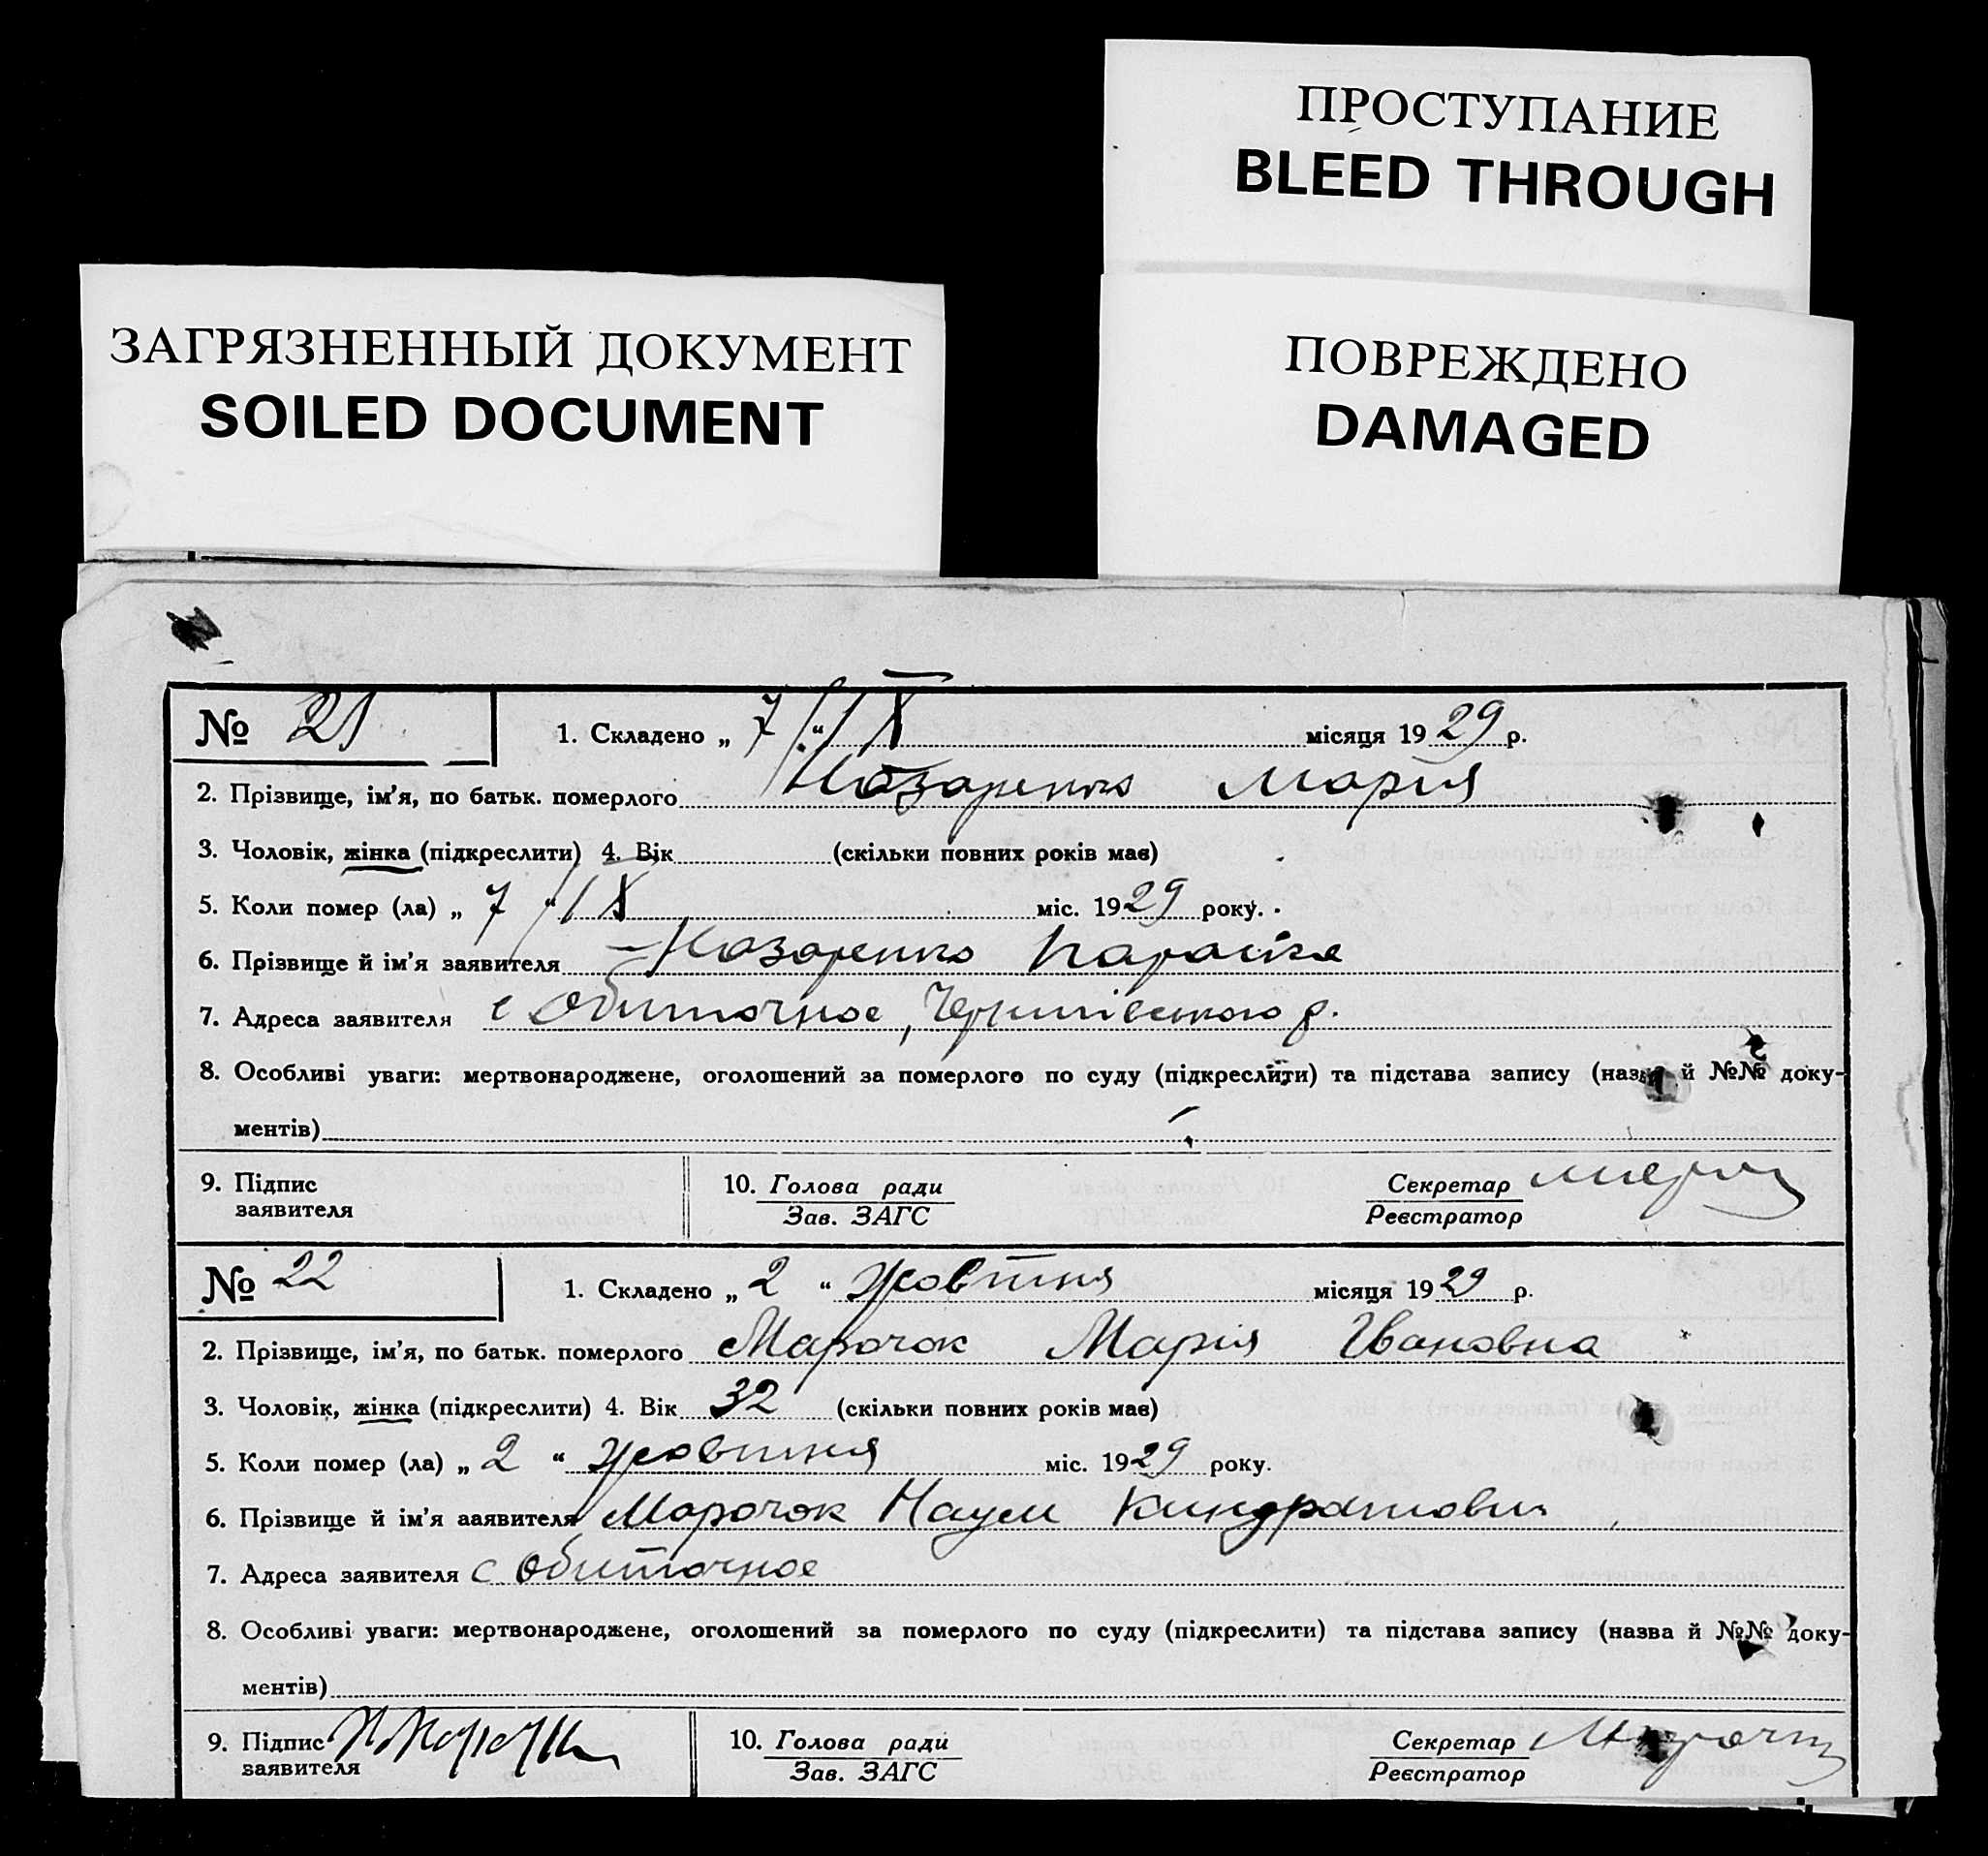 ПРОСТУПАНИЕ
BLEED THROUGH
ЗАГРЯЗНЕННЫЙ ДОКУМЕНТ
SOILED DOCUMENT
ПОВРЕЖДЕНО
DAMAGED
№ 21 1. Складено „ 7 “ IX місяця 1929 р.
2. Прізвище, ім’я, по батьк. померлого Назаренко Марія
3. Чоловік, жінка (підкреслити) 4. Вік (скільки повних років має)
5. Коли помер (ла) „ 7 “ IX міс. 1929 року.
6. Прізвище й ім’я заявителя Назаренко Параска
7. Адреса заявителя с Обиточное, Чернигівського р.
8. Особливі уваги: мертвонароджене, оголошений за померлого по суду (підкреслити) та підстава запису (назва й №№ доку-
ментів)
9. Підпис заявителя 10. Голова ради Секретар
Зав. ЗАГС Реєстратор
№ 22 1. Складено „ 2 “ Жовтня місяця 1929 р.
2. Прізвище, ім’я, по батьк. померлого Марочок Марія Івановна
3. Чоловік, жінка (підкреслити) 4. Вік 32 (скільки повних років має)
5. Коли помер (ла) „ 2 “ Жовтня міс. 1929 року.
6. Прізвище й ім’я заявителя Марочок Наум Киндратович
7. Адреса заявителя с Обиточное
8. Особливі уваги: мертвонароджене, оголошений за померлого по суду (підкреслити) та підстава запису (назва й №№ доку-
ментів)
9. Підпис заявителя 10. Голова ради Секретар
Зав. ЗАГС Реєстратор